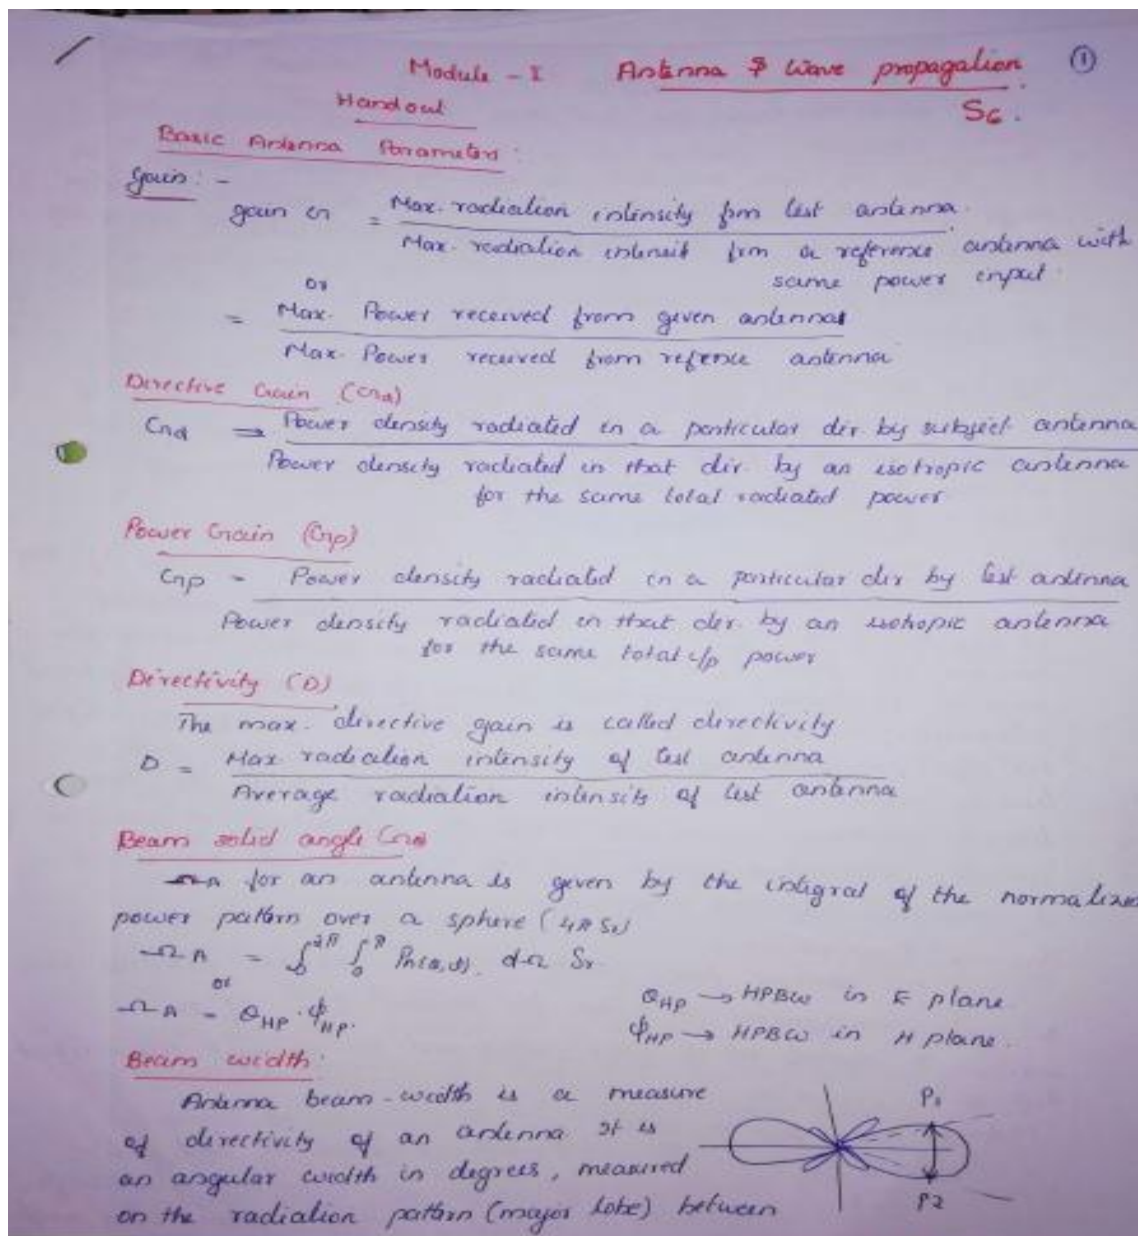 Module - I Antenna & Wave propagation ①
Handout S6.
Basic Antenna Parameters :
Gain : -
gain G = Max. radiation intensity frm test antenna.
Max. radiation intensit frm a reference antenna with
same power input
or
= Max. Power received from given antenna
Max. Power received from refence antenna
Directive Gain (Gd)
Gd = Power density radiated in a particular dir. by subject antenna
Power density radiated in that dir. by an isotropic antenna
for the same total radiated power
Power Gain (Gp)
Gp = Power density radiated in a particular dir by test antenna
Power density radiated in that dir. by an isotropic antenna
for the same total i/p power
Directivity (D)
The max. directive gain is called directivity
D = Max radiation intensity of test antenna
Average radiation intensity of test antenna
Beam solid angle (ΩA)
ΩA for an antenna is given by the integral of the normalized
power pattern over a sphere (4π Sr)
ΩA = ∫₀^2π ∫₀^π Pn(θ,ϕ). dΩ Sr
or
ΩA = θHP . ϕHP.
θHP → HPBW in E plane
ϕHP → HPBW in H plane.
Beam width :
Antenna beam-width is a measure
of directivity of an antenna It is
an angular width in degrees, measured
on the radiation pattern (major lobe) between
P1
P2